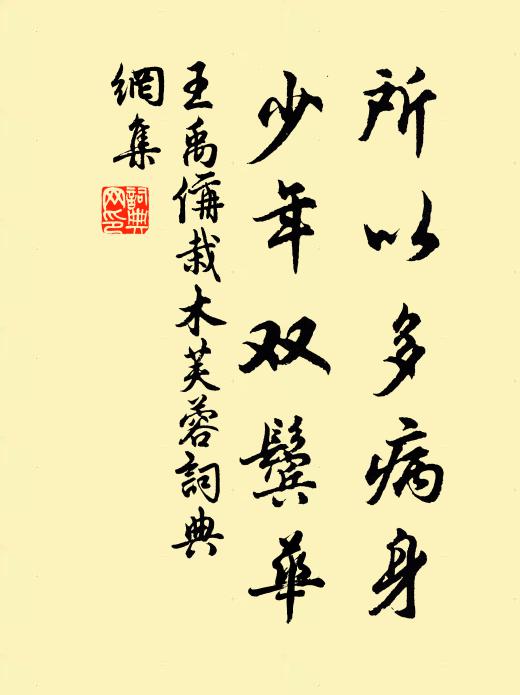 所以多病身
少年双鬓华
王禹偁栽木芙蓉词典
網集
詞典
网印